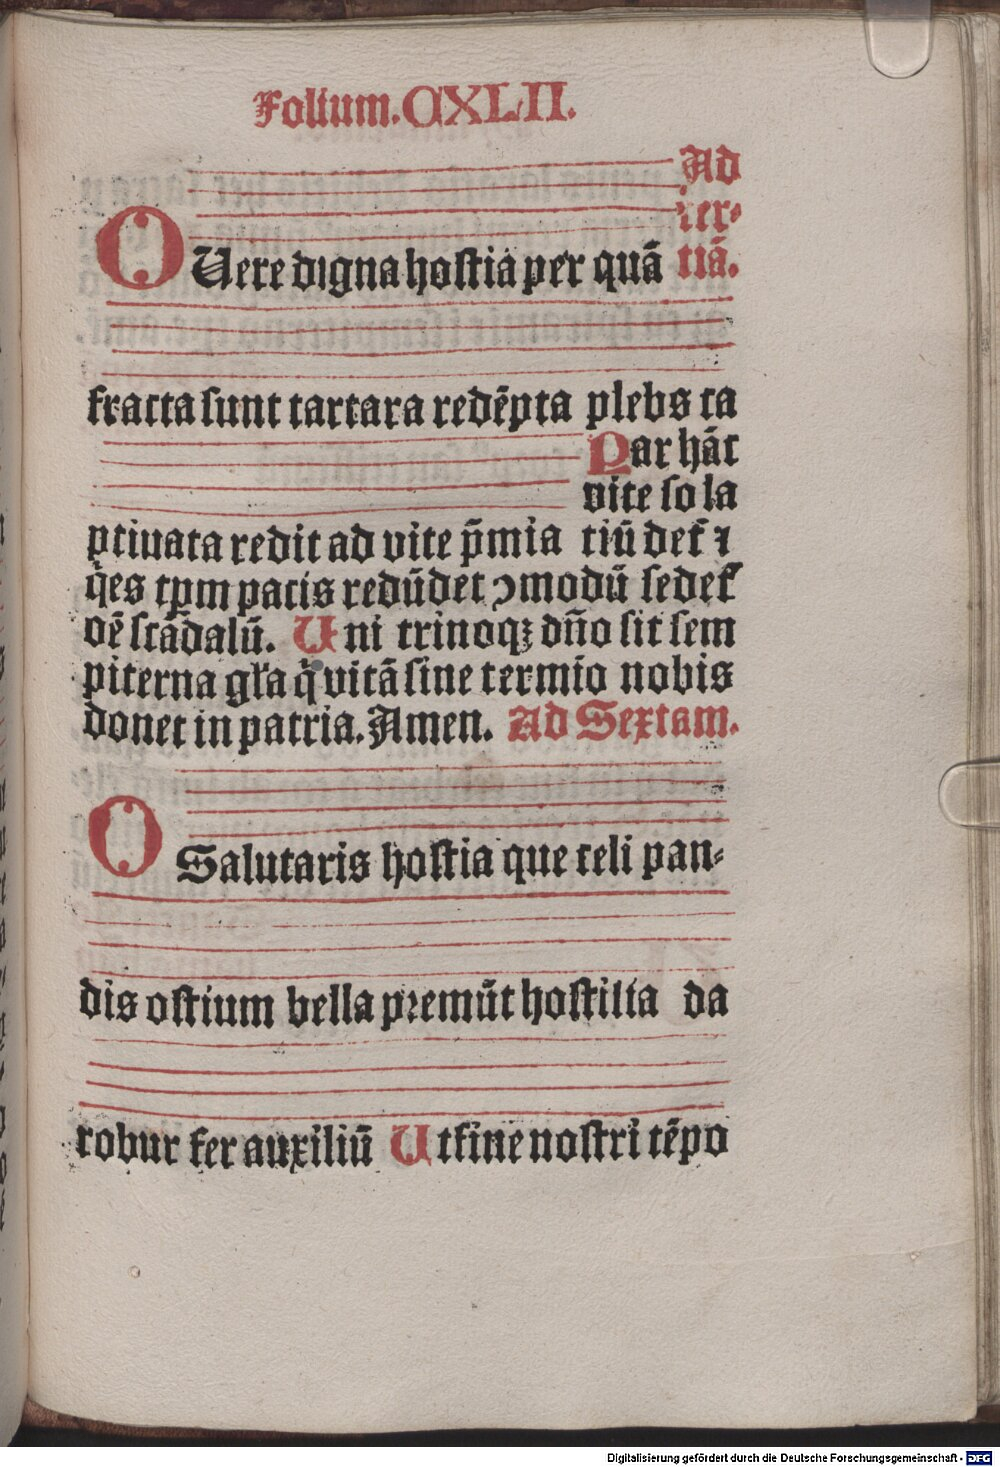 Folium. CXLII.
Ad
ter-
O Vere digna hostia per quā tiā.
fracta sunt tartara redēpta plebs ca
Par hāc
vite so la
ptiuata redit ad vite p̄mia tiū det᷑ ⁊
q̇es tꝑm pacis redūdet ꝯmodū sedet᷑
oē scādalū. Uni trinoqꝫ dn̄o sit sem
piterna gl'a q̇ vitā sine termīo nobis
donet in patria. Amen. Ad Sextam.
O Salutaris hostia que celi pan-
dis ostium bella premūt hostilia da
robur fer auxiliū Ut fine nostri tēpo
Digitalisierung gefördert durch die Deutsche Forschungsgemeinschaft - DFG